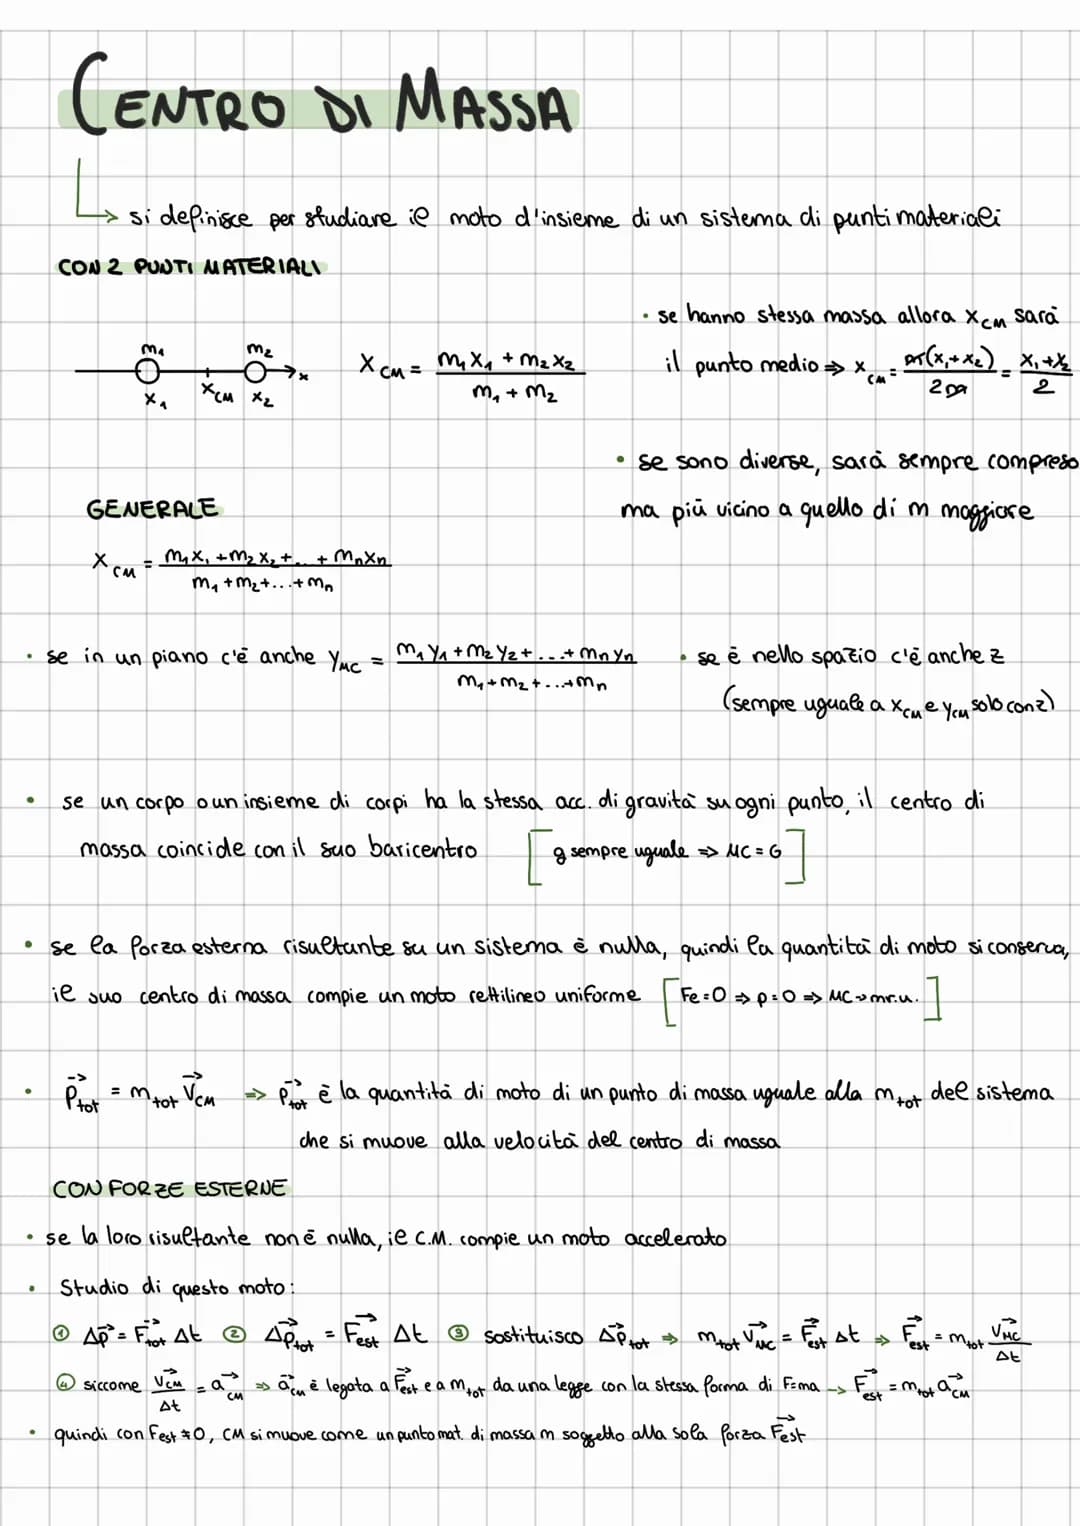 CENTRO DI MASSA
→ si definisce per studiare il moto d'insieme di un sistema di punti materiali
CON 2 PUNTI MATERIALI
• se hanno stessa massa allora x_CM sarà
il punto medio ⇒ x_CM = m(x₁+x₂)/2m = x₁+x₂/2
m₁ m₂
x₁ x_CM x₂ x
X_CM = m₁x₁ + m₂x₂ / m₁ + m₂
• se sono diverse, sarà sempre compreso
ma più vicino a quello di m maggiore
GENERALE
X_CM = m₁x₁ + m₂x₂ + ... + mₙxₙ / m₁ + m₂ + ... + mₙ
• se in un piano c'è anche y_MC = m₁y₁ + m₂y₂ + ... + mₙyₙ / m₁ + m₂ + ... + mₙ
• se è nello spazio c'è anche z
(sempre uguale a x_CM e y_CM solo con z)
• se un corpo o un insieme di corpi ha la stessa acc. di gravità su ogni punto, il centro di
massa coincide con il suo baricentro [g sempre uguale => MC = G]
• se la forza esterna risultante su un sistema è nulla, quindi la quantità di moto si conserva,
il suo centro di massa compie un moto rettilineo uniforme [Fe=0 ⇒ p=0 ⇒ MC → m.r.u.]
• p⃗_tot = m_tot v⃗_CM => p⃗_tot è la quantità di moto di un punto di massa uguale alla m_tot del sistema
che si muove alla velocità del centro di massa
CON FORZE ESTERNE
• se la loro risultante non è nulla, il C.M. compie un moto accelerato
• Studio di questo moto:
① Δp⃗ = F⃗_tot Δt ② Δp⃗_tot = F⃗_est Δt ③ sostituisco Δp⃗_tot ⇒ m_tot v⃗_MC = F⃗_est Δt ⇒ F⃗_est = m_tot v⃗_MC/Δt
④ siccome v⃗_CM/Δt = a⃗_CM ⇒ a⃗_CM è legata a F⃗_est e a m_tot da una legge con la stessa forma di F=ma → F⃗_est = m_tot a⃗_CM
• quindi con Fest ≠ 0, CM si muove come un punto mat. di massa m soggetto alla sola forza F⃗est